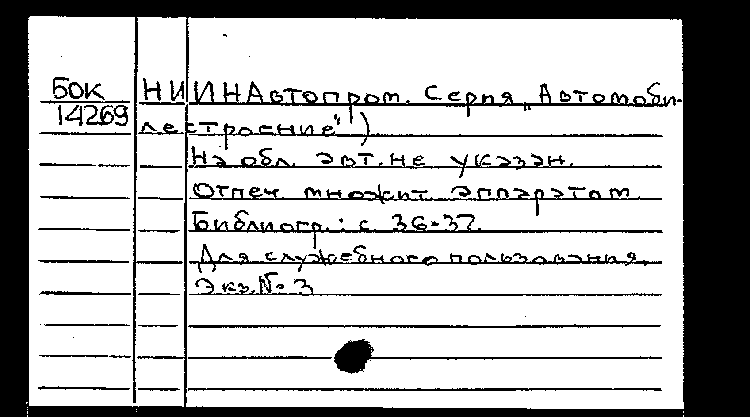 БОК НИИНАвтопром. Серия „Автомоби-
14269 лестроение")
На обл. авт. не указан.
Отпеч. множит. аппаратом
Библиогр.: с. 36-37.
Для служебного пользования.
Экз. № 3